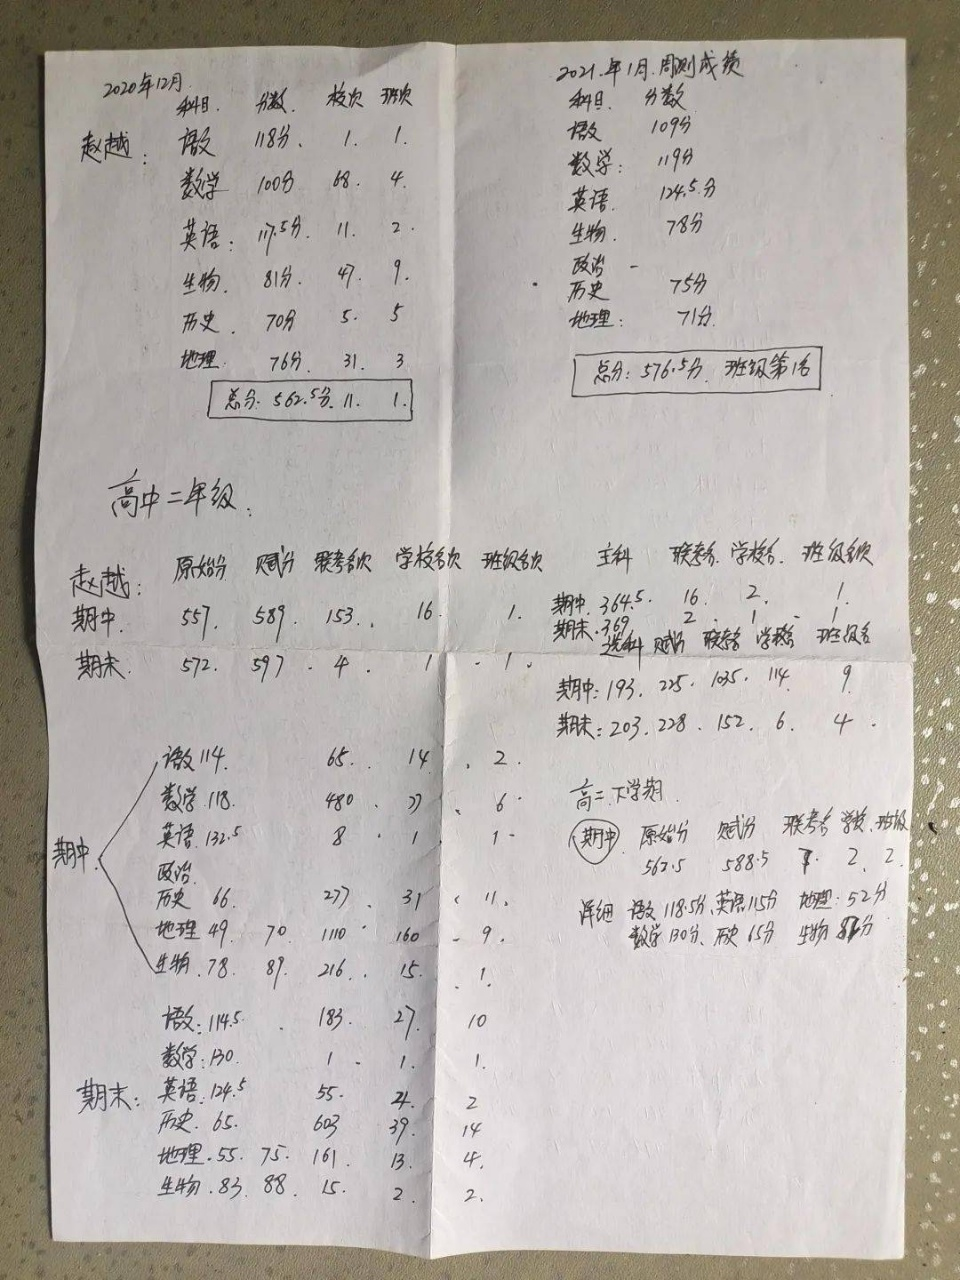 2020年12月
科目. 分数. 校次 班次
赵越: 语文 118分. 1. 1.
数学 100分 68. 4.
英语: 117.5分. 11. 2.
生物. 81分. 47. 9.
历史. 70分 5. 5
地理. 76分. 31. 3
总分: 562.5分. 11. 1.
2021.年1月.周测成绩
科目. 分数
语文 109分
数学: 119分
英语. 124.5分
生物. 78分
政治 -
历史 75分
地理: 71分.
总分: 576.5分. 班级第1名
高中二年级.
赵越: 原始分 赋分 联考名次 学校名次 班级名次
期中. 557. 589. 153. 16. 1.
期末. 572. 597. 4. 1. 1.
主科 联考名. 学校名. 班级名次
期中. 364.5. 16. 2. 1.
期末. 369 2. 1. 1
选科 赋分 联考名 学校名 班级名
期中: 193. 225. 1035. 114. 9.
期末: 203. 228. 152. 6. 4.
期中.
语文 114. 65. 14. 2.
数学 118. 480. 6.
英语 132.5 8. 1. 1.
政治
历史 66. 277. 31. 11.
地理 49. 70. 1110. 160. 9.
生物. 78. 89. 216. 15. 1.
期末:
语文: 114.5. 183. 27. 10
数学: 130. 1. 1. 1.
英语. 124.5 55. 2
历史. 65. 603 39. 14
地理. 55. 75. 161. 13. 4.
生物. 83. 88. 15. 2. 2.
高二下学期
期中 原始分 赋分 联考名 学校. 班级
562.5 588.5 2. 2.
详细 语文 118.5分、英语 115分 地理: 52分
数学 130分、历史 65分 生物 分